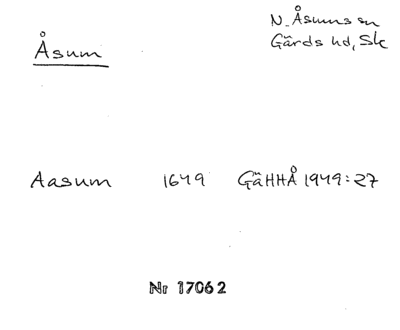 N. Åsums sn
Åsum
Gärds hd, Sk
Aasum 1649 GäHHÅ 1949:27
Nr 17062